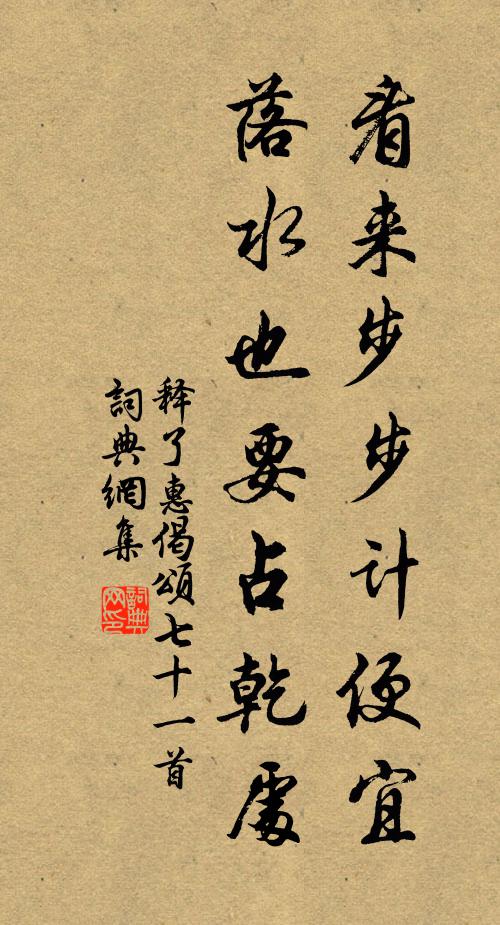 看来步步计便宜
落水也要占乾處
释了惠偈頌七十一首
詞典網集
詞典网印